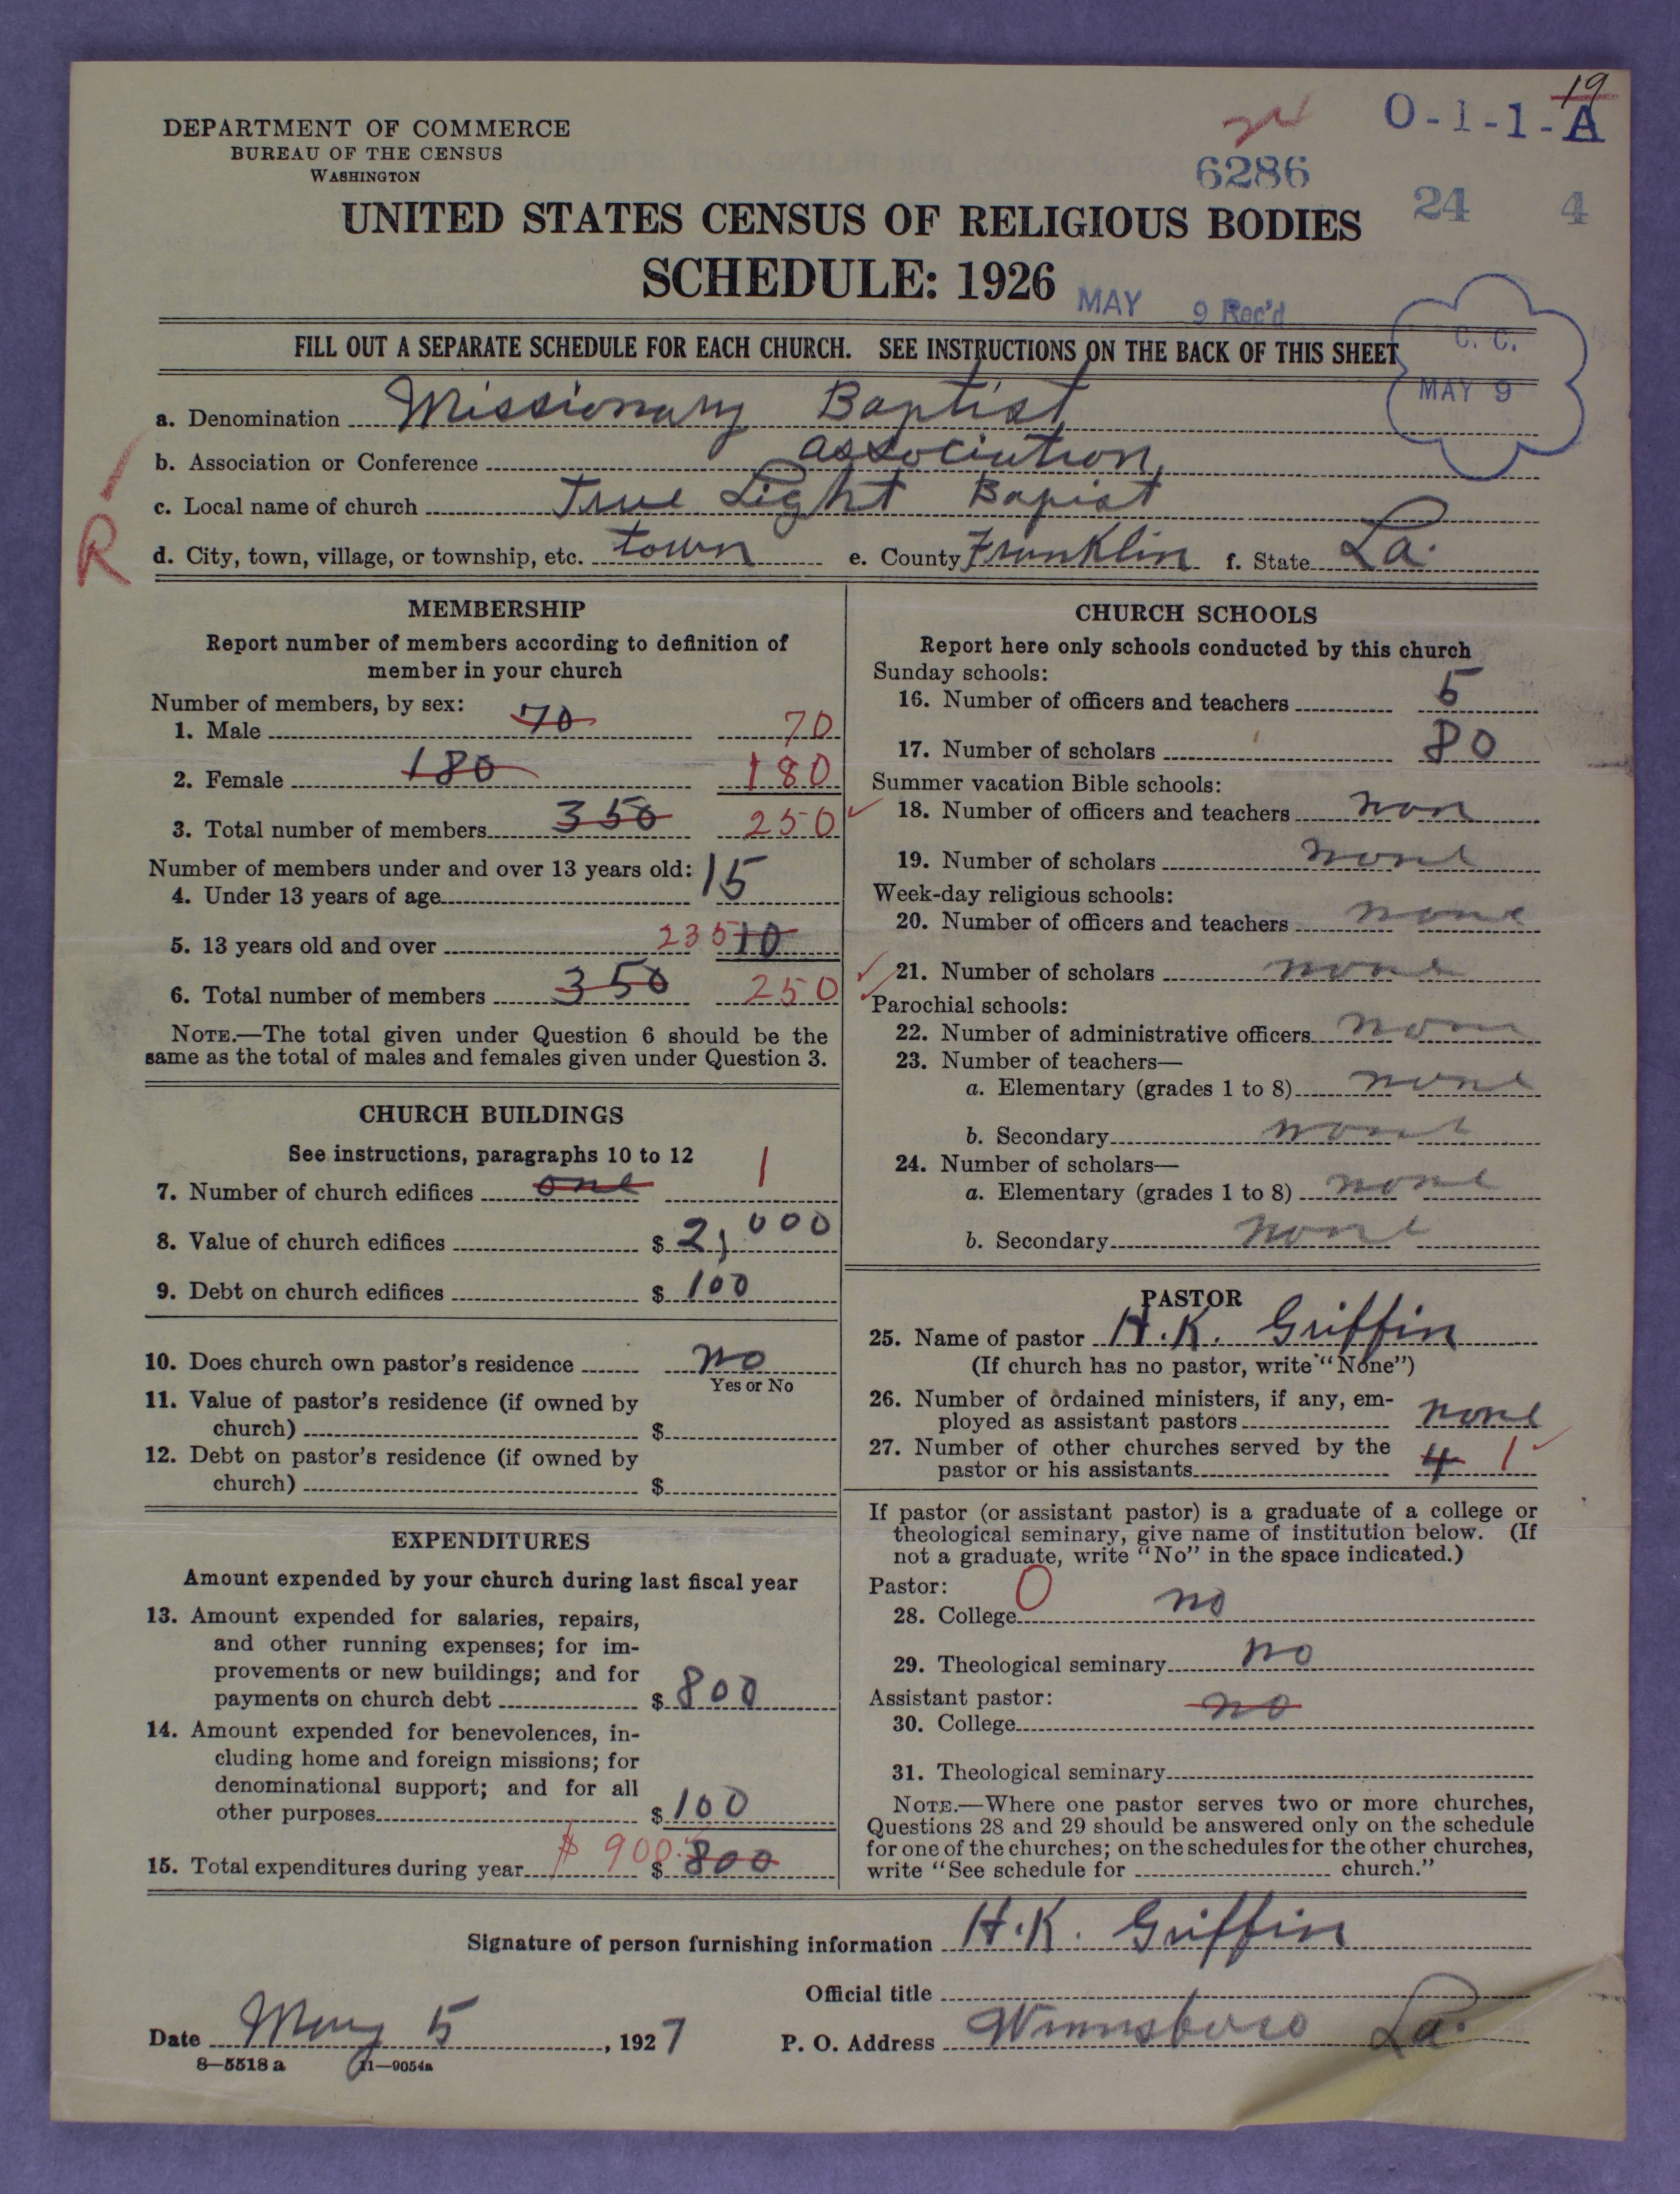 19
O-1-1-A
6286
24 4
DEPARTMENT OF COMMERCE
BUREAU OF THE CENSUS
WASHINGTON
UNITED STATES CENSUS OF RELIGIOUS BODIES
SCHEDULE: 1926
MAY 9 Rec'd
FILL OUT A SEPARATE SCHEDULE FOR EACH CHURCH. SEE INSTRUCTIONS ON THE BACK OF THIS SHEET
C. C.
MAY 9
a. Denomination Missionary Baptist
b. Association or Conference association
c. Local name of church True Light Bapist
R
d. City, town, village, or township, etc. town e. County Franklin f. State La.
MEMBERSHIP
Report number of members according to definition of
member in your church
Number of members, by sex:
1. Male 70 70
2. Female 180 180
3. Total number of members 350 250
Number of members under and over 13 years old:
4. Under 13 years of age 15
5. 13 years old and over 235 10
6. Total number of members 350 250
NOTE.—The total given under Question 6 should be the
same as the total of males and females given under Question 3.
CHURCH BUILDINGS
See instructions, paragraphs 10 to 12
7. Number of church edifices one 1
8. Value of church edifices $ 2,000
9. Debt on church edifices $ 100
10. Does church own pastor's residence no
Yes or No
11. Value of pastor's residence (if owned by
church) $
12. Debt on pastor's residence (if owned by
church) $
EXPENDITURES
Amount expended by your church during last fiscal year
13. Amount expended for salaries, repairs,
and other running expenses; for im-
provements or new buildings; and for
payments on church debt $ 800
14. Amount expended for benevolences, in-
cluding home and foreign missions; for
denominational support; and for all
other purposes $ 100
15. Total expenditures during year $ 900. $ 800
CHURCH SCHOOLS
Report here only schools conducted by this church
Sunday schools:
16. Number of officers and teachers 5
17. Number of scholars 80
Summer vacation Bible schools:
18. Number of officers and teachers non
19. Number of scholars none
Week-day religious schools:
20. Number of officers and teachers none
21. Number of scholars none
Parochial schools:
22. Number of administrative officers non
23. Number of teachers—
a. Elementary (grades 1 to 8) none
b. Secondary none
24. Number of scholars—
a. Elementary (grades 1 to 8) none
b. Secondary none
PASTOR
25. Name of pastor H.K. Griffin
(If church has no pastor, write "None")
26. Number of ordained ministers, if any, em-
ployed as assistant pastors none
27. Number of other churches served by the
pastor or his assistants 4 1
If pastor (or assistant pastor) is a graduate of a college or
theological seminary, give name of institution below. (If
not a graduate, write "No" in the space indicated.)
Pastor: 0
28. College no
29. Theological seminary no
Assistant pastor: no
30. College
31. Theological seminary
NOTE.—Where one pastor serves two or more churches,
Questions 28 and 29 should be answered only on the schedule
for one of the churches; on the schedules for the other churches,
write "See schedule for church."
Signature of person furnishing information H.K. Griffin
Official title
Date May 5, 1927 P. O. Address Winnsboro La.
8—5518 a 11—9054a